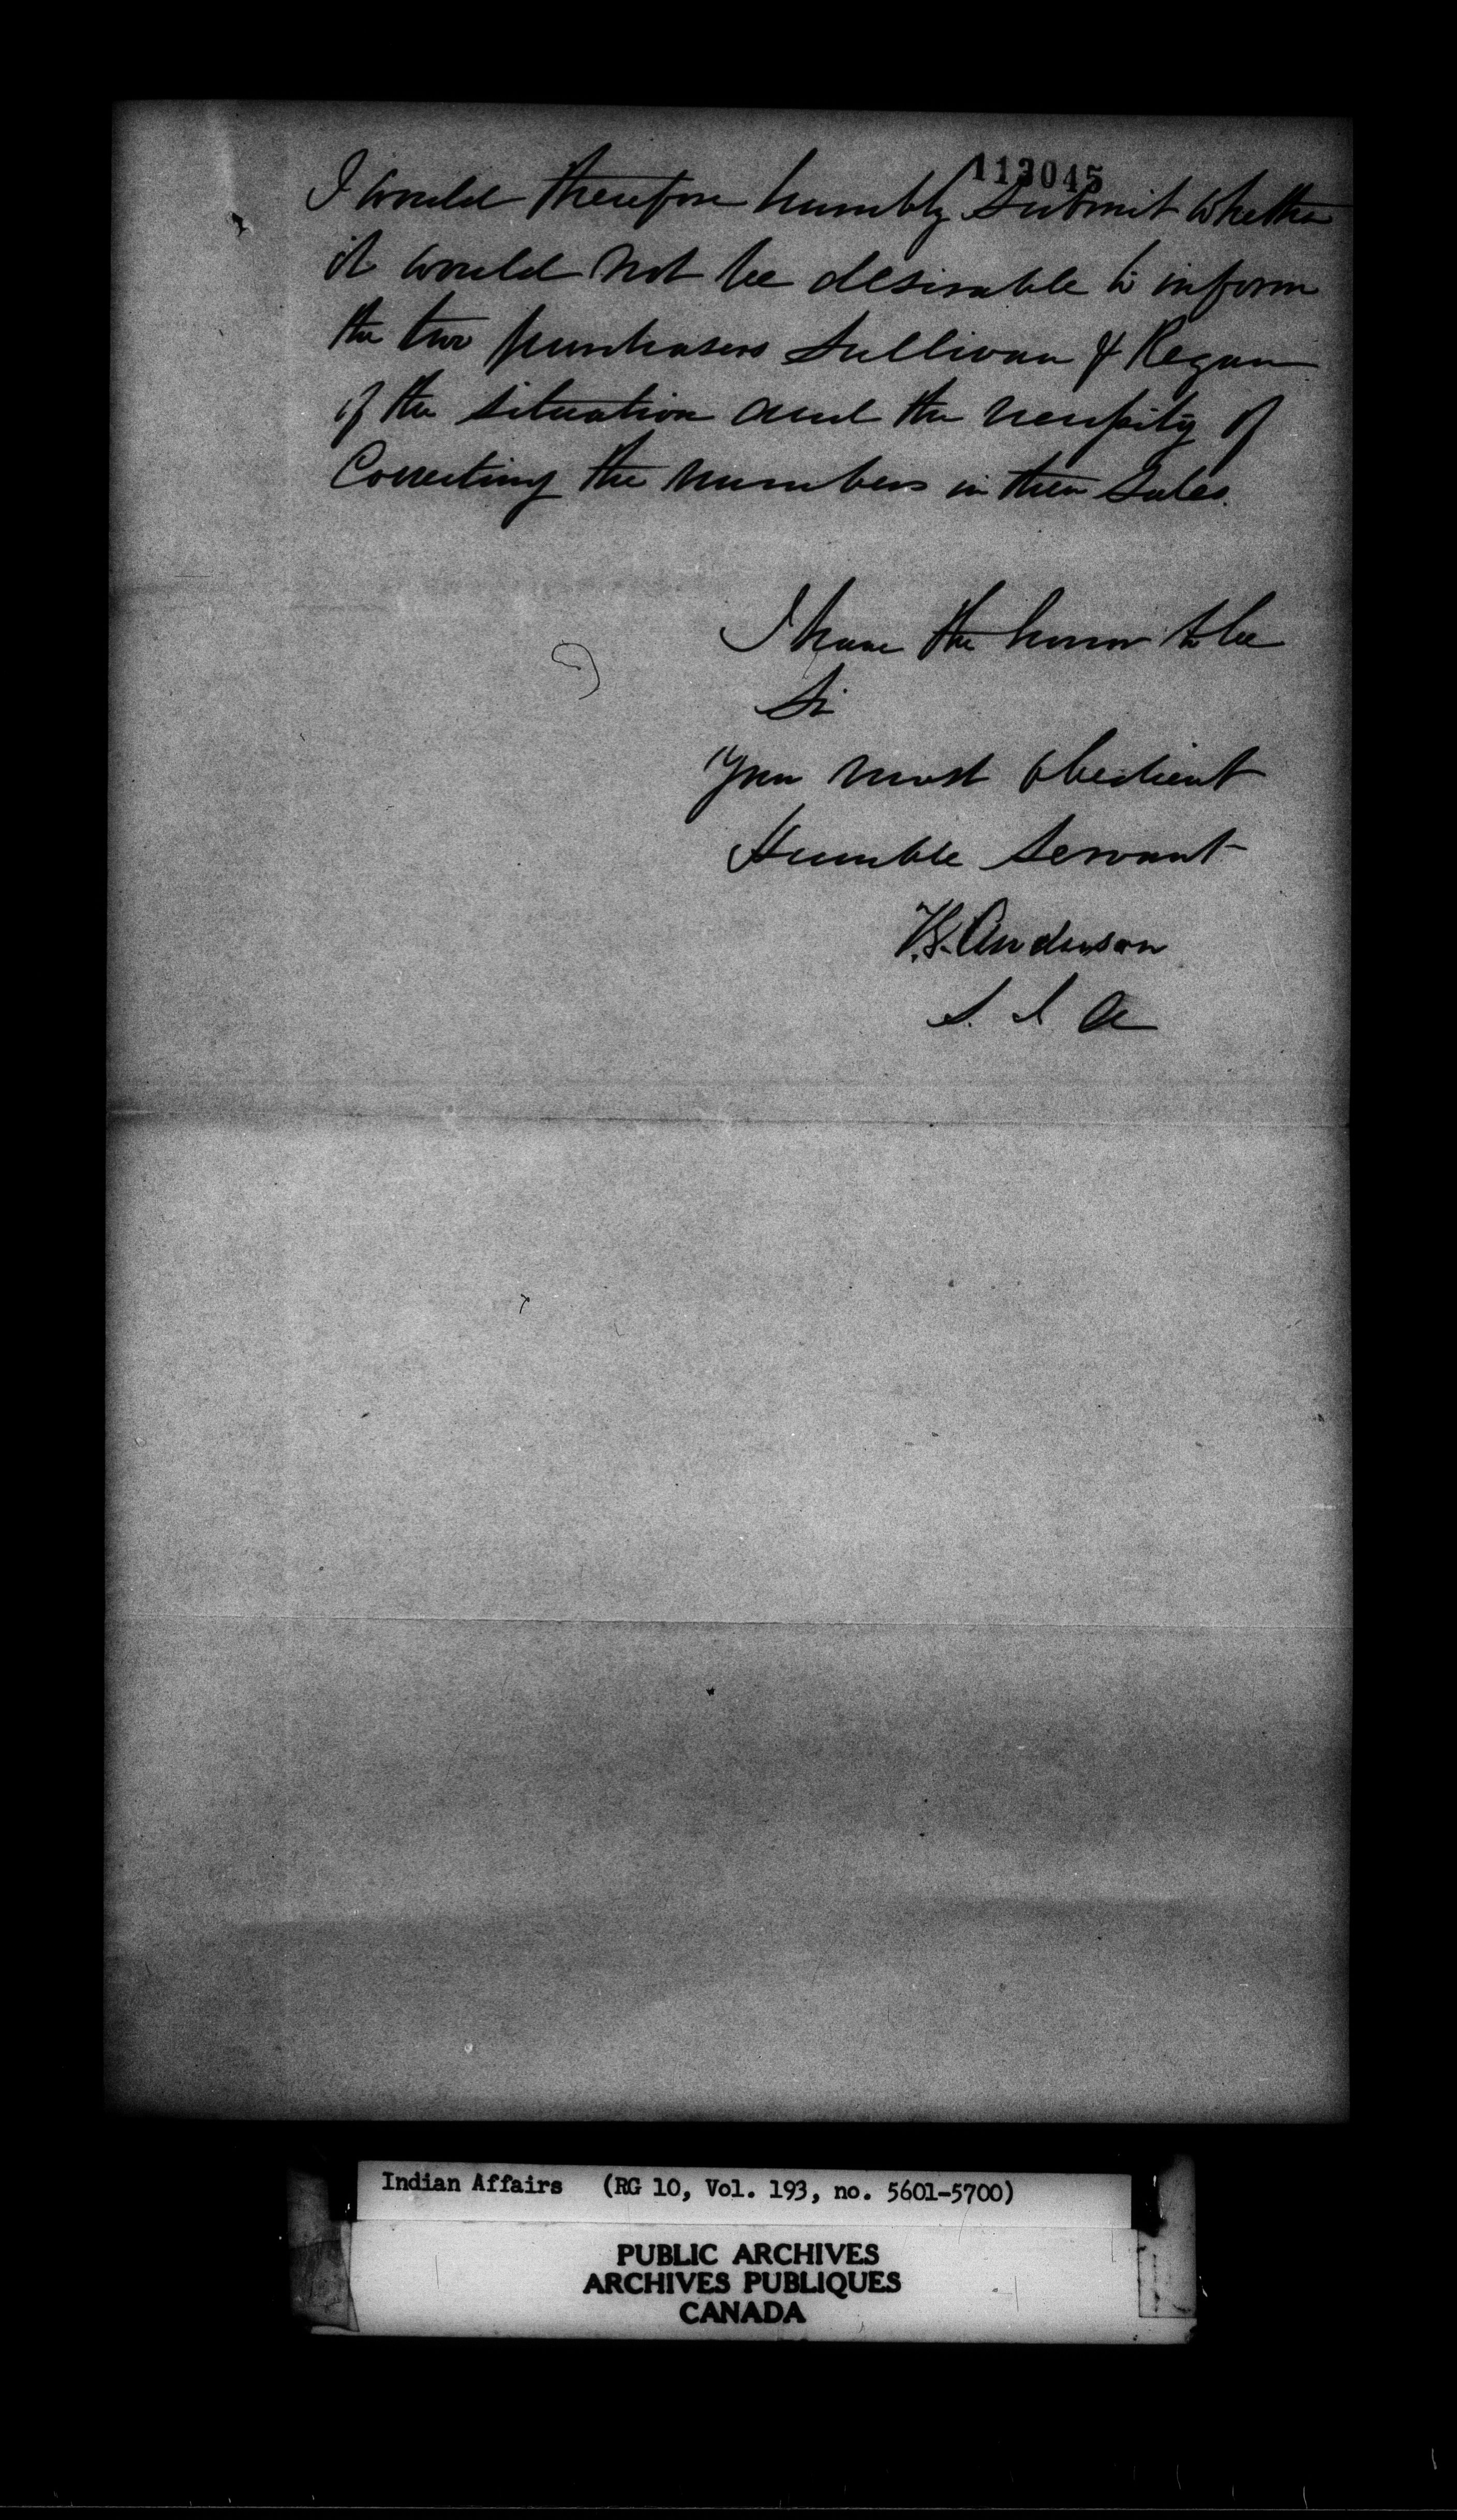 113045
I would therefore humbly submit whether
it would not be desirable to inform
the two purchasers Sullivan & Regan
of the situation and the necessity of
Correcting the numbers in their Sales.
I have the honor to be
Sir
Your most obedient
Humble Servant
T.G. Anderson
S. I A
Indian Affairs (RG 10, Vol. 193, no. 5601-5700)
PUBLIC ARCHIVES
ARCHIVES PUBLIQUES
CANADA